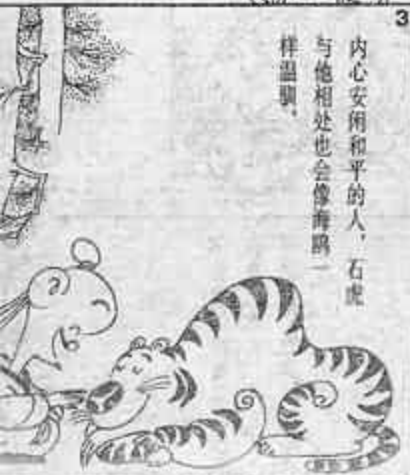 3
内心安闲和平的人，石虎
与他相处也会像海鸥一
样温驯。